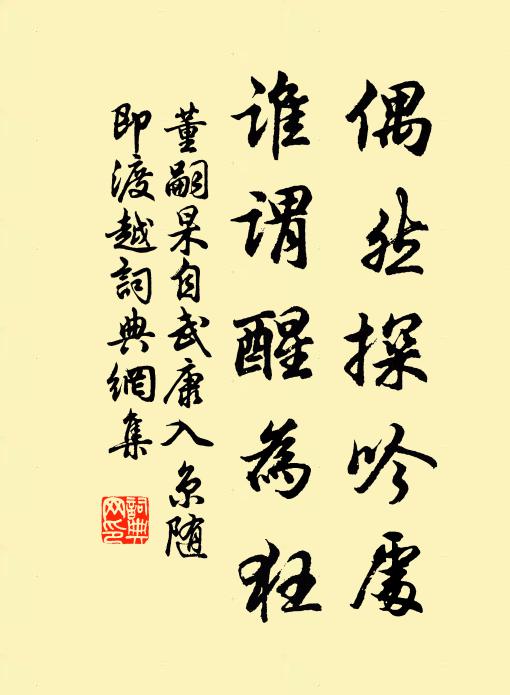 偶然探吟處
誰謂醒為狂
董嗣杲自武康入京随
即渡越詞典網集
詞典網印